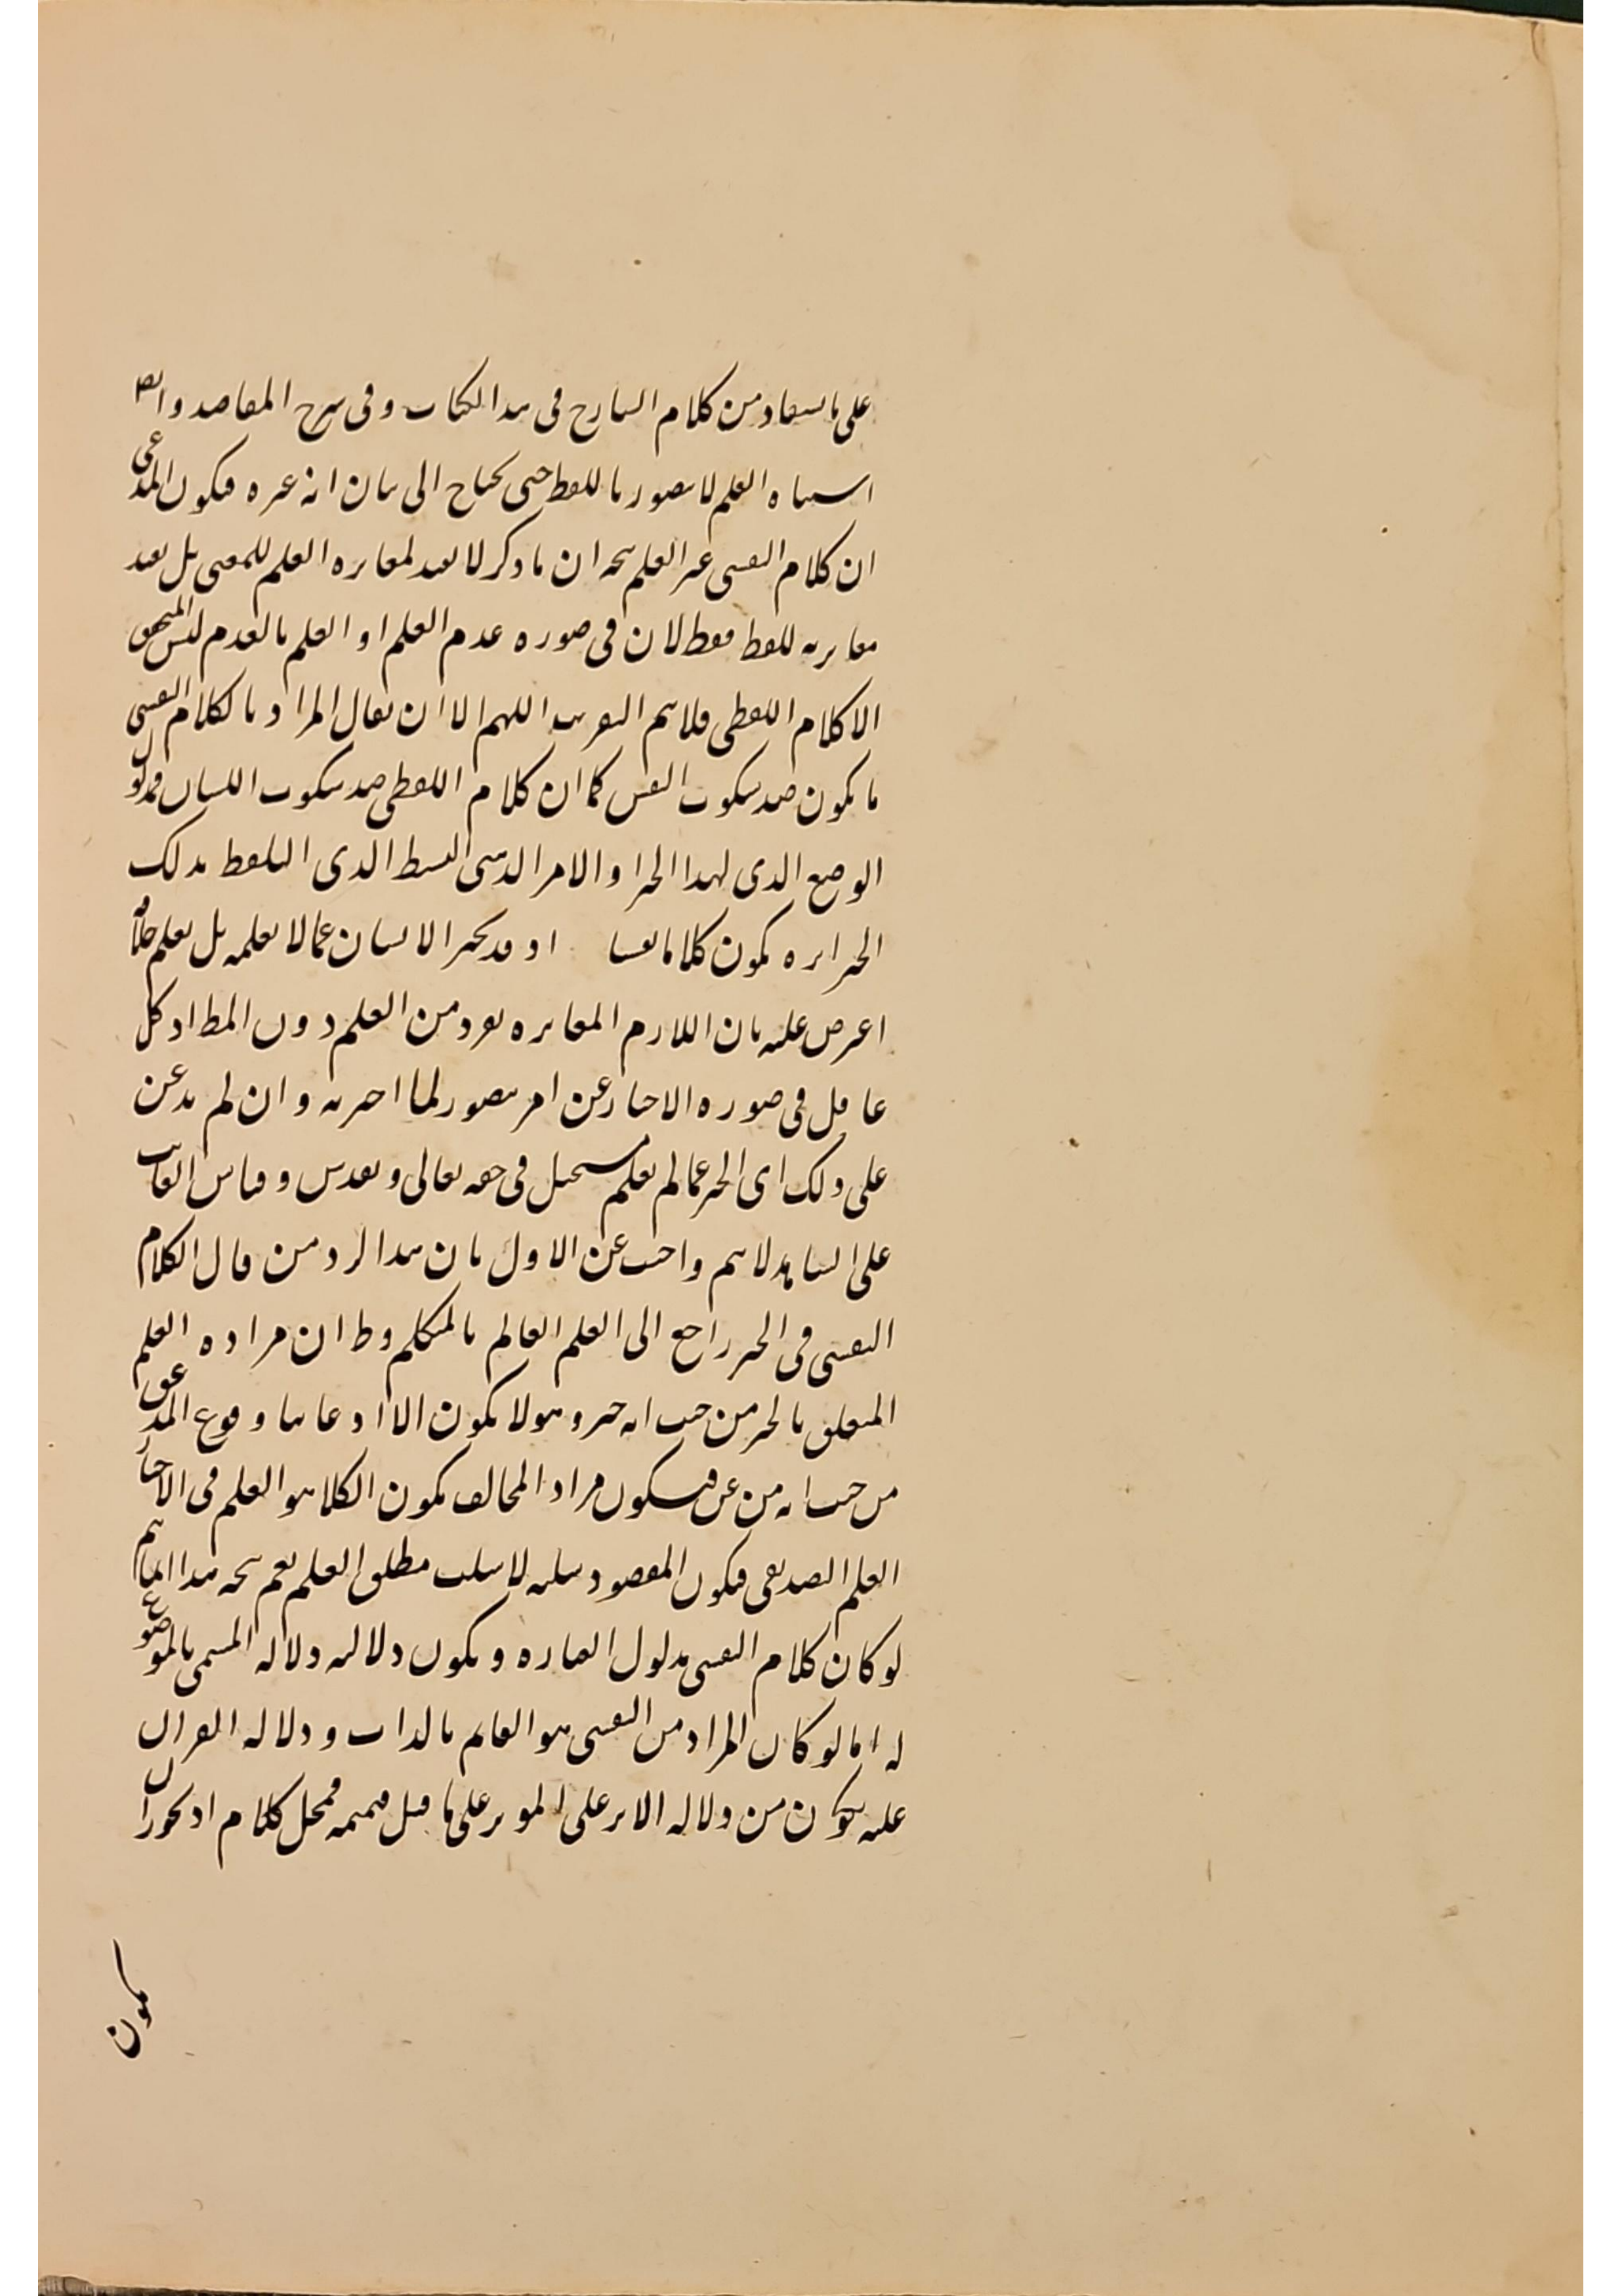 على ما يستفاد من كلام الشارح فى هذا الكتاب و فى شرح المقاصد وايض
اشتباه العلم لا يتصور باللفظ حتى يحتاج الى بيان انه غيره فيكون المدعى
ان كلام النفسى غير العلم يتجه ان ما ذكر لا يفيد لمغايره العلم للمعنى بل يفيد
مغايرته للفظ فقط لان فى صوره عدم العلم او العلم بالعدم ليس المتحقق
الا كلام اللفظى فلا يتم التقريب اللهم الا ان يقال المراد بالكلام النفسى
ما يكون ضد سكوت النفس كما ان كلام اللفظى ضد سكوت اللسان فمدلول
الوضع الذى لهذا الخبر والامر الذهنى البسيط الذى التلفظ بذلك
الخبر اثره يكون كلاما نفسيا اذ قد يخبر الانسان عما لا يعلمه بل يعلم خلافه
اعترض عليه بان اللازم المغايره لفرد من العلم دون المط اذ كل
عاقل فى صوره الاخبار عن امر يتصور لما اخبر به و ان لم يذعن
على ذلك اى الخبر عما لم يعلم مستحيل فى حقه تعالى و تقدس و قياس الغائب
على الشاهد لا يتم واجيب عن الاول بان هذا الرد من قال الكلام
النفسى فى الخبر راجع الى العلم القائم بالمتكلم وظ ان مراده العلم
المتعلق بالخبر من حيث انه خبر و هو لا يكون الا اذعانا و وقوع المدعى
من حيث انه من عن فيكون مراد المخالف بكون الكلام هو العلم فى الاخبار
العلم التصديقى فيكون المقصود سلبه لا سلب مطلق العلم نعم يتجه هذا انما يتم
لو كان كلام النفسى مدلول العباره و يكون دلالته دلاله المسمى بالموضوع
له اما لو كان المراد من النفسى هو القائم بالذات و دلاله القران
عليه يكون من دلاله الاثر على المؤثر على ما قيل فتتميمه محل كلام اذ يجوز ان
يكون